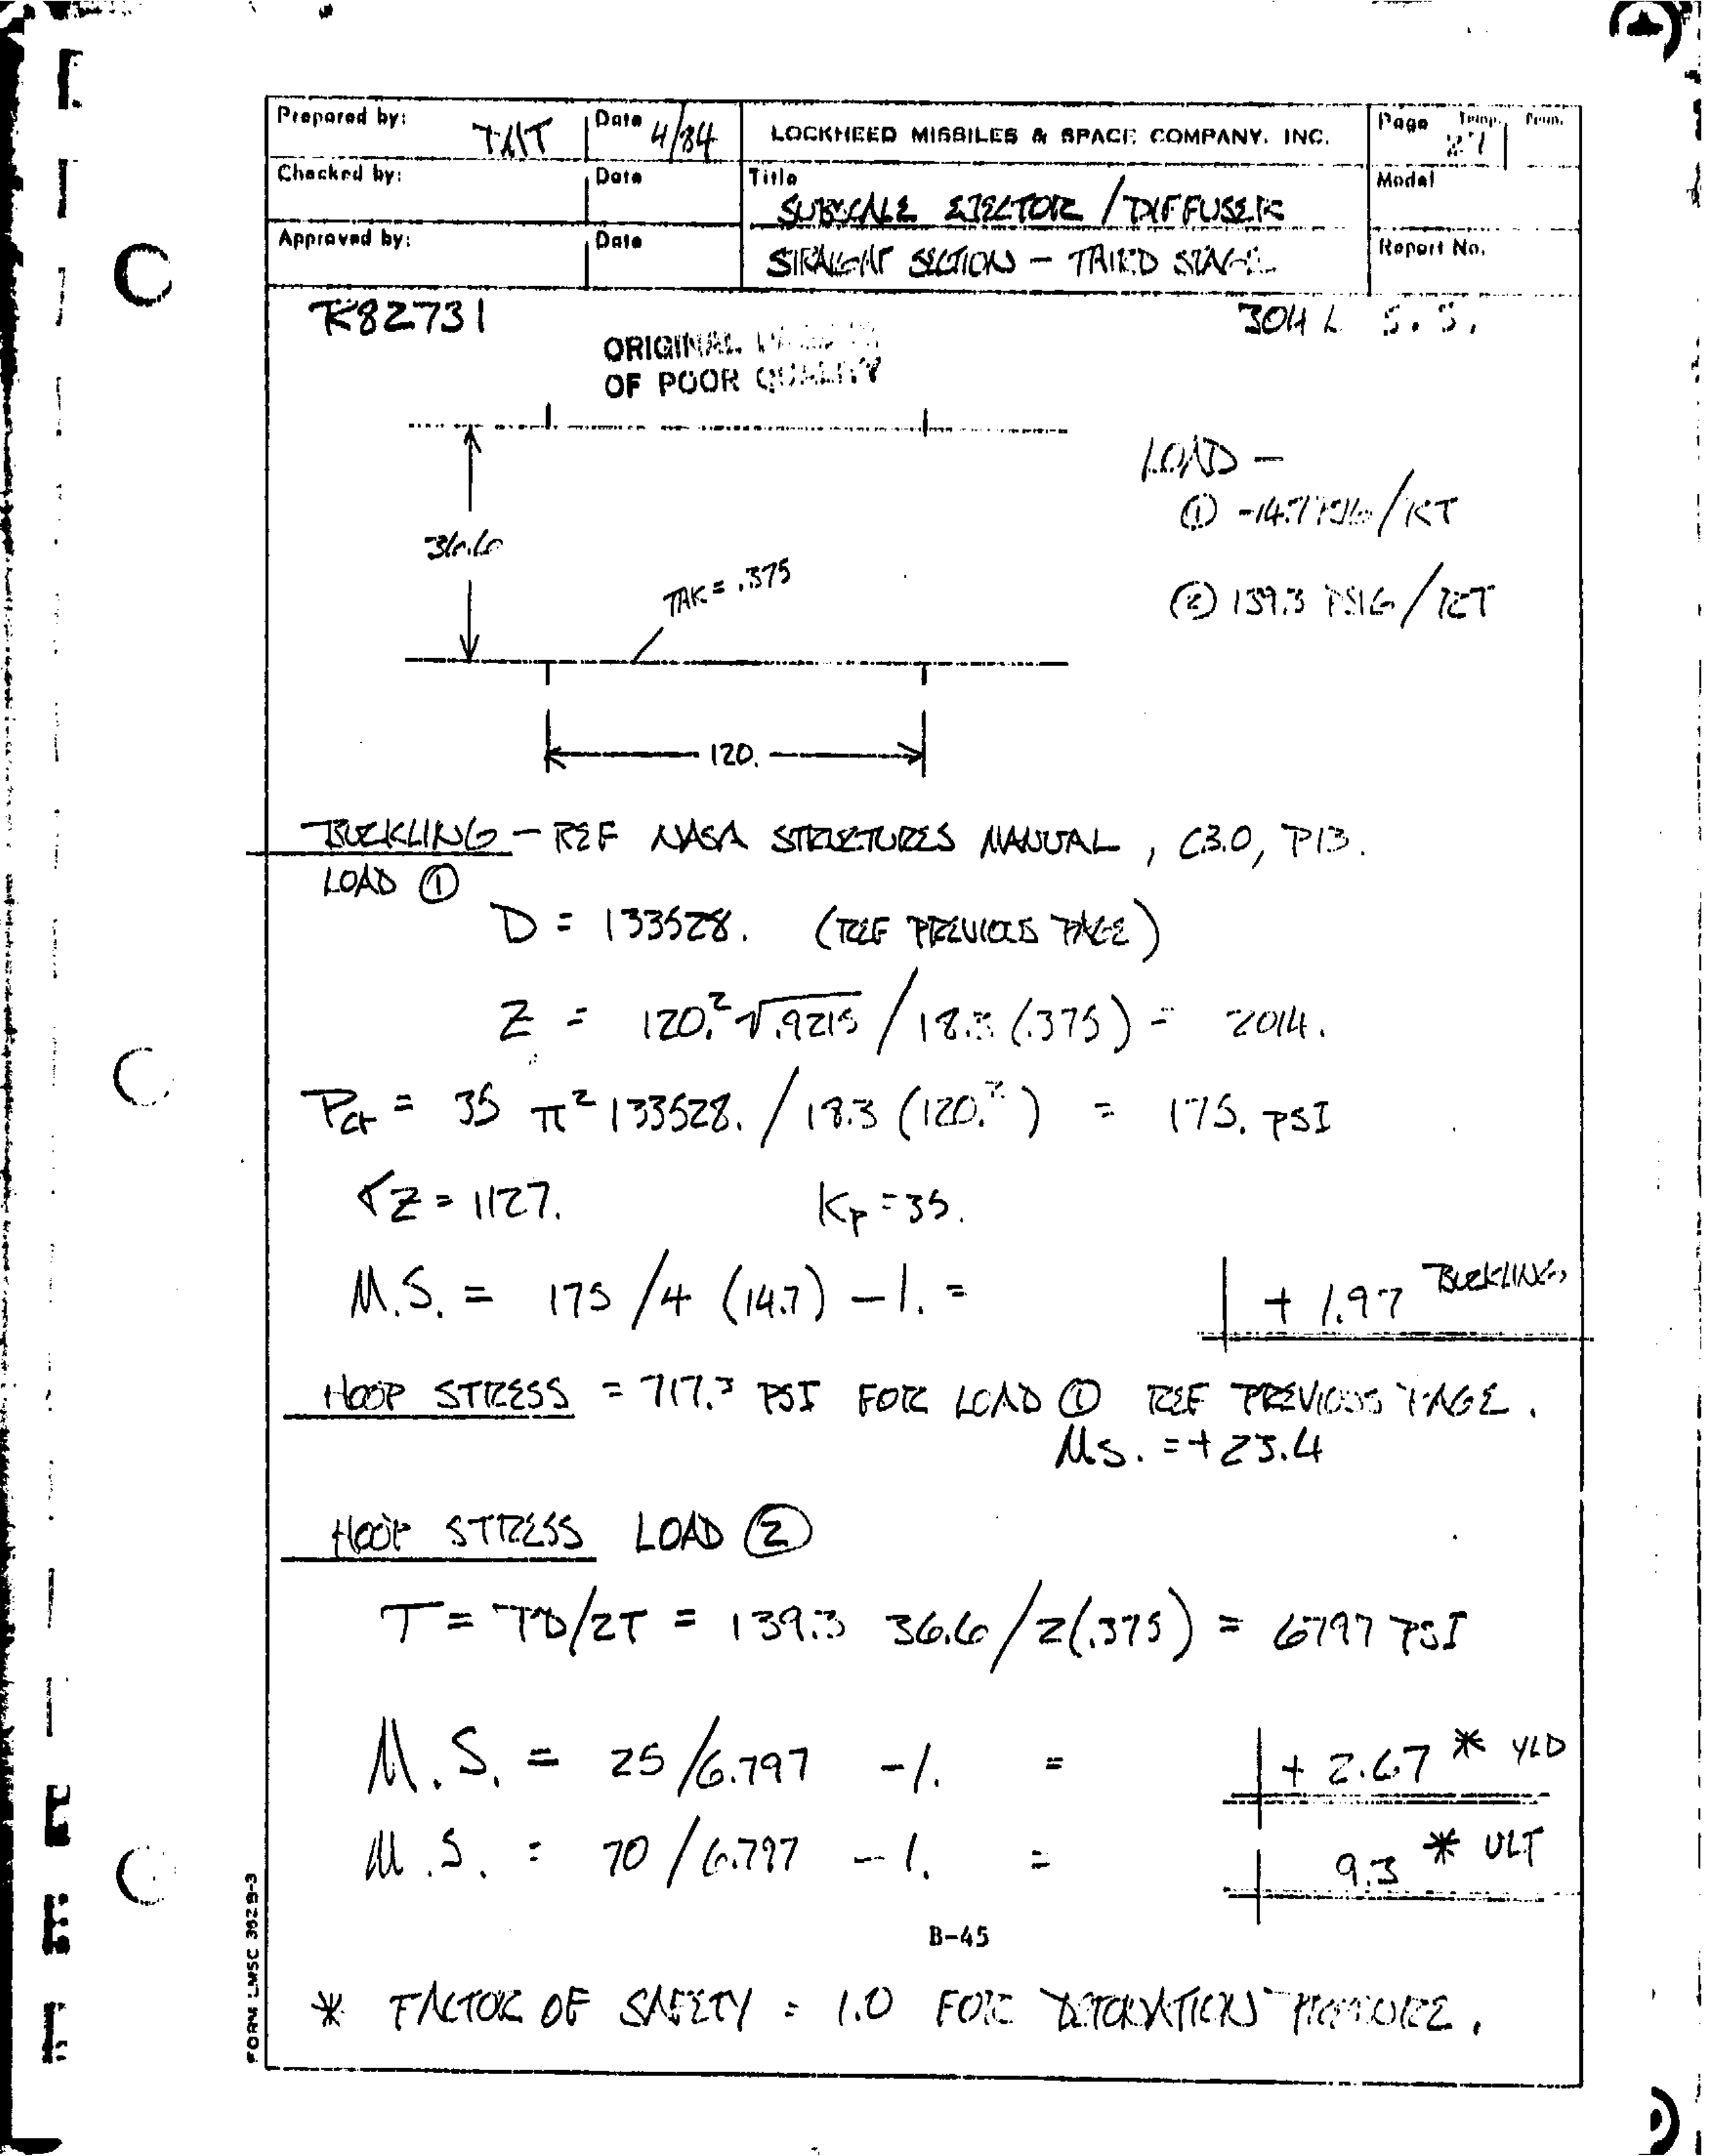 Prepared by: TAT Date 4/84 LOCKHEED MISSILES & SPACE COMPANY, INC. Page Temp. Perm.
Checked by: Date Title Model
SUBSCALE EJECTOR / DIFFUSER
Approved by: Date STRAIGHT SECTION - THIRD STAGE Report No.
R82731 304 L S.S.
ORIGINAL
OF POOR QUALITY
LOAD -
① -14.7 PSIG / RT
36.6
THK = .375
② 139.3 PSIG / RT
120.
BUCKLING - REF NASA STRUCTURES MANUAL, C3.0, P13.
LOAD ①
D = 133528. (REF PREVIOUS PAGE)
Z = 120.² √.9215 / 18.3 (.375) = 2014.
Pcr = 35 π² 133528. / 18.3 (120.²) = 175. PSI
Z = 1127. Kp = 35.
M.S. = 175 / 4 (14.7) - 1. = + 1.97 BUCKLING
HOOP STRESS = 717.3 PSI FOR LOAD ① REF PREVIOUS PAGE.
MS. = + 23.4
HOOP STRESS LOAD ②
T = PD/2T = 139.3 36.6 / 2(.375) = 6797 PSI
M.S. = 25 / 6.797 - 1. = + 2.67 * YLD
M.S. = 70 / 6.797 - 1. = 9.3 * ULT
B-45
* FACTOR OF SAFETY = 1.0 FOR DETONATION PRESSURE.
FORM LMSC 3629-3